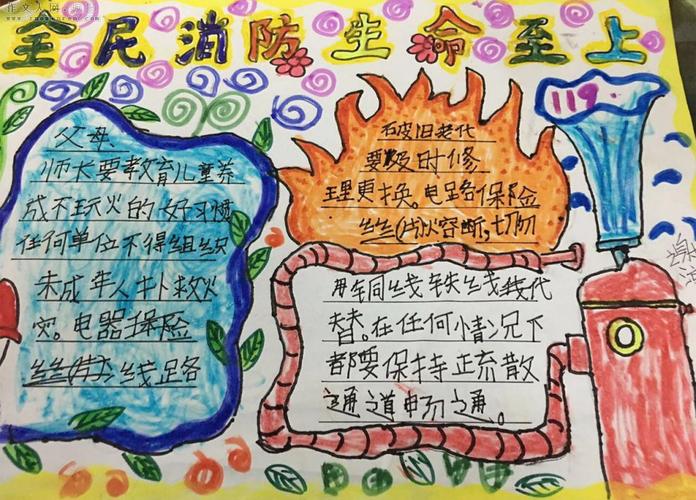 全民消防生命至上
父母
师长要教育儿童养
成不玩火的好习惯
任何单位不得组织
未成年人扑救火
灾。电器保险
丝(片)线路
破旧老化
要及时修
理更换。电路保险
丝(片)火容断,切勿
用铜线铁线代
替。在任何情况下
都要保持疏散
通道畅通。
119